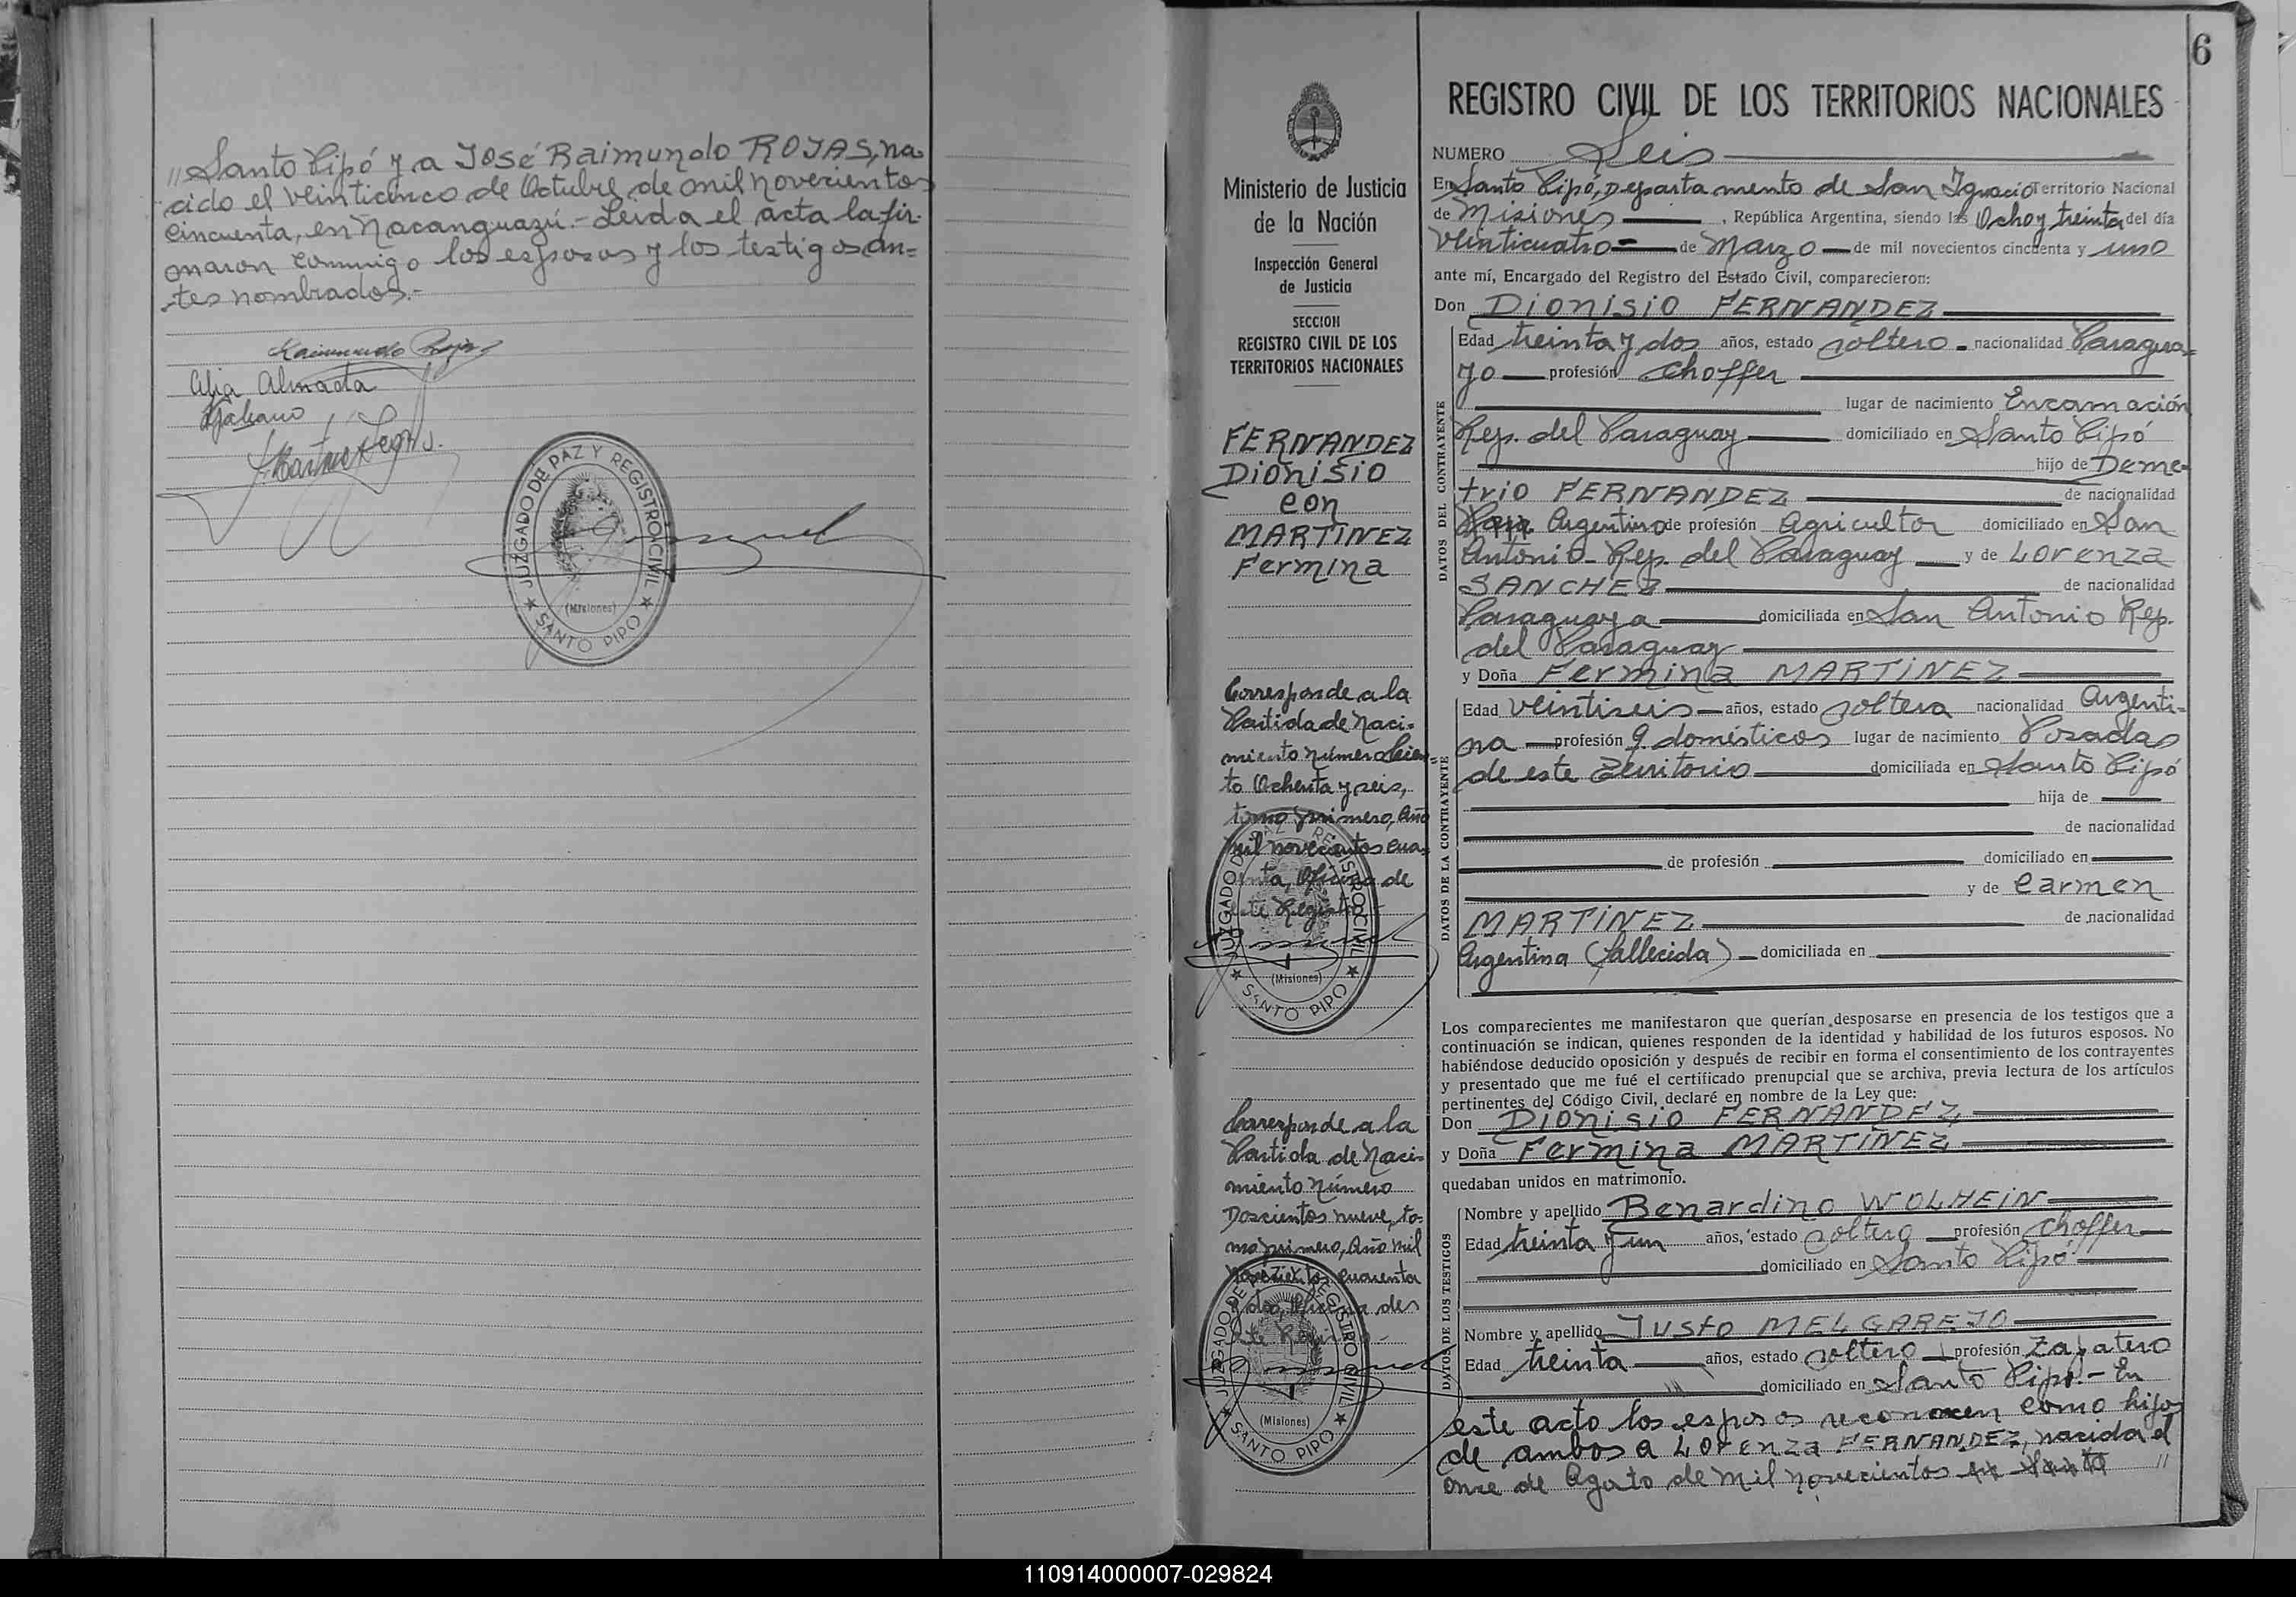 "Santo Pipó y a José Raimundo ROJAS, na
cido el veinticinco de Octubre de mil novecientos
cincuenta, en Ñacanguazú.- Leída el acta la fir-
maron conmigo los esposos y los testigos an=
tes nombrados.-
Raimundo Rojas
Almada
Galeano
JUZGADO DE PAZ Y REGISTRO CIVIL
(Misiones)
SANTO PIPO
6
Ministerio de Justicia
de la Nación
Inspección General
de Justicia
SECCION
REGISTRO CIVIL DE LOS
TERRITORIOS NACIONALES
FERNANDEZ
Dionisio
con
MARTINEZ
Fermina
Corresponde a la
Partida de Naci-
miento número Cien-
to Ochenta y seis,
tomo primero, Año
mil novecientos cua-
enta, Oficina de
este Registro
JUZGADO DE PAZ Y REGISTRO CIVIL
(Misiones)
SANTO PIPO
Corresponde a la
Partida de Naci-
miento número
Doscientos nueve, to-
mo primero, Año mil
novecientos cuarenta
y dos, Oficina de
este Registro.-
JUZGADO DE PAZ Y REGISTRO CIVIL
(Misiones)
SANTO PIPO
REGISTRO CIVIL DE LOS TERRITORIOS NACIONALES
NUMERO Seis
En Santo Pipó, Departamento de San Ignacio Territorio Nacional
de Misiones, República Argentina, siendo las Ocho y treinta del día
Veinticuatro de Marzo de mil novecientos cincuenta y uno
ante mí, Encargado del Registro del Estado Civil, comparecieron:
Don Dionisio FERNANDEZ
DATOS DEL CONTRAYENTE
Edad treinta y dos años, estado soltero - nacionalidad Paragua=
yo profesión choffer
lugar de nacimiento Encarnación
Rep. del Paraguay domiciliado en Santo Pipó
hijo de Deme-
trio FERNANDEZ de nacionalidad
Argentino de profesión Agricultor domiciliado en San
Antonio - Rep. del Paraguay y de Lorenza
SANCHEZ de nacionalidad
Paraguaya domiciliada en San Antonio Rep.
del Paraguay
y Doña Fermina MARTINEZ
DATOS DE LA CONTRAYENTE
Edad veintiseis años, estado soltera nacionalidad Argenti-
na profesión q. domésticos lugar de nacimiento Posadas
de este Territorio domiciliada en Santo Pipó
hija de
de nacionalidad
de profesión domiciliado en
y de Carmen
MARTINEZ de nacionalidad
Argentina (fallecida) domiciliada en
Los comparecientes me manifestaron que querían desposarse en presencia de los testigos que a
continuación se indican, quienes responden de la identidad y habilidad de los futuros esposos. No
habiéndose deducido oposición y después de recibir en forma el consentimiento de los contrayentes
y presentado que me fué el certificado prenupcial que se archiva, previa lectura de los artículos
pertinentes del Código Civil, declaré en nombre de la Ley que:
Don Dionisio FERNANDEZ
y Doña Fermina MARTINEZ
quedaban unidos en matrimonio.
DATOS DE LOS TESTIGOS
Nombre y apellido Benardino WOLHEIN
Edad treinta y un años, estado soltero profesión choffer
domiciliado en Santo Pipó
Nombre y apellido Justo MELGAREJO
Edad treinta años, estado soltero profesión Zapatero
domiciliado en Santo Pipó.- En
este acto los esposos reconocen como hijos
de ambos a Lorenza FERNANDEZ, nacida el
once de Agosto de mil novecientos en Santo "
110914000007-029824